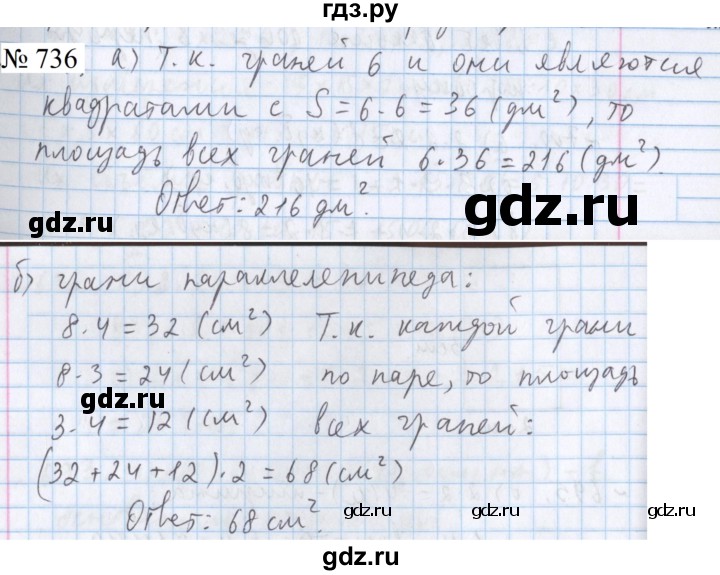 гдз.ру
№ 736 а) Т.к. граней 6 и они являются
квадратами с S = 6·6 = 36 (дм²), то
площадь всех граней 6·36 = 216 (дм²).
Ответ: 216 дм².
gdz.ru
gdz.ru
б) грани параллелепипеда:
8·4 = 32 (см²) Т.к. каждой грани
8·3 = 24 (см²) по паре, то площадь
gdz.ru
3·4 = 12 (см²) всех граней:
(32 + 24 + 12)·2 = 68 (см²)
Ответ: 68 см².
gdz.ru
gdz.ru
gdz.ru